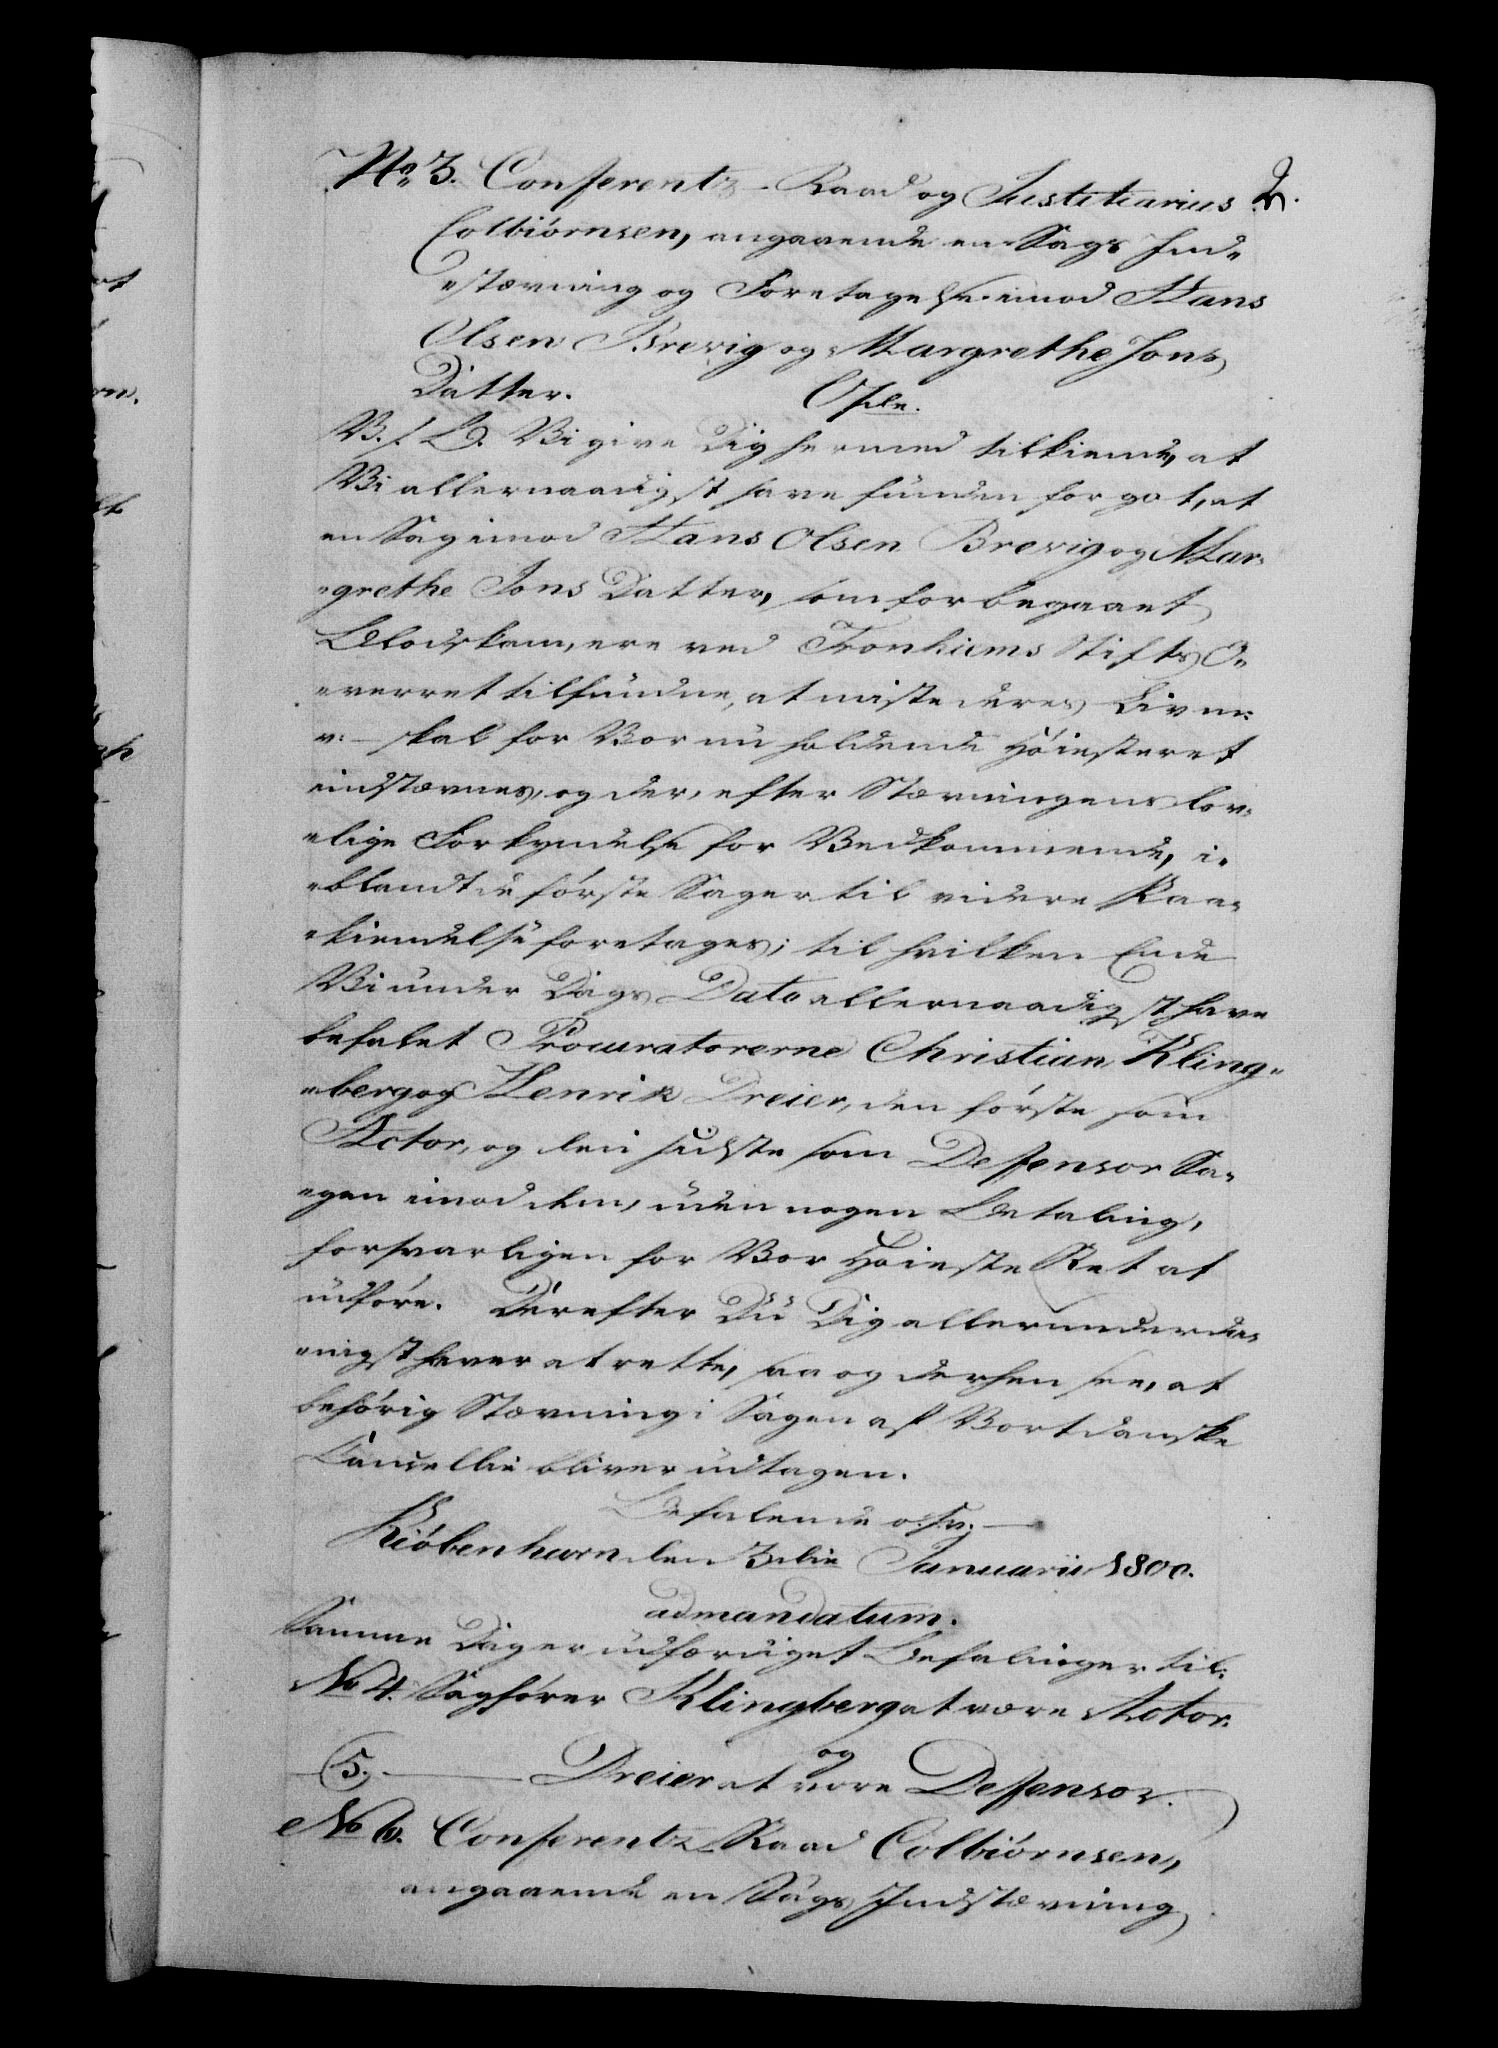 No 3. Conferentz-Raad og Justitiarius 2.
Colbiörnsen, angaaende en Sags Ind=
=stævning og Foretagelse imod Hans
Olsen Brevig og Margrethe Jons
Datter. Ofsln.
V. s. G. Vi give Dig hermed tilkiende, at
Vi allernaadigst have funden for got, at
en Sag imod Hans Olsen Brevig og Mar=
=grethe Jons Datter, som for begaaet
Blodskam, ere ved Tronhiems Stifts O=
=verret tilfundne, at miste deres Liv m:
v: — skal for Vor nu holdende Höiesteret
indstævnes, og der, efter Stævningens lov=
=lige Forkyndelse for Vedkommende, i=
=blandt de förste Sager til videre Paa=
=kiendelse foretages; til hvilken Ende
Vi under Dags Dato allernaadigst have
befalet Procuratorerne Christian Kling=
=berg og Henrik Dreier, den förste som
Actor, og den sidste som Defensor Sa=
=gen imod dem, uden nogen Betaling,
forsvarligen for Vor Höieste Ret at
udföre. Derefter Du Dig allerunderda=
=nigst haver at rette, saa og derhen see, at
behörig Stævning i Sagen af Vort danske
Cancellie bliver udtagen.
Befalende o. s. v. —
Kiöbenhavn den 3die Januarii 1800.
ad mandatum.
Samme Dag er udfærdiget Befalinger til:
No 4. Sagförer Klingberg at være Actor.
og
5. — Dreier at være Defensor.
No 6. Conferentz-Raad Colbiörnsen,
angaaende en Sags Indstævning